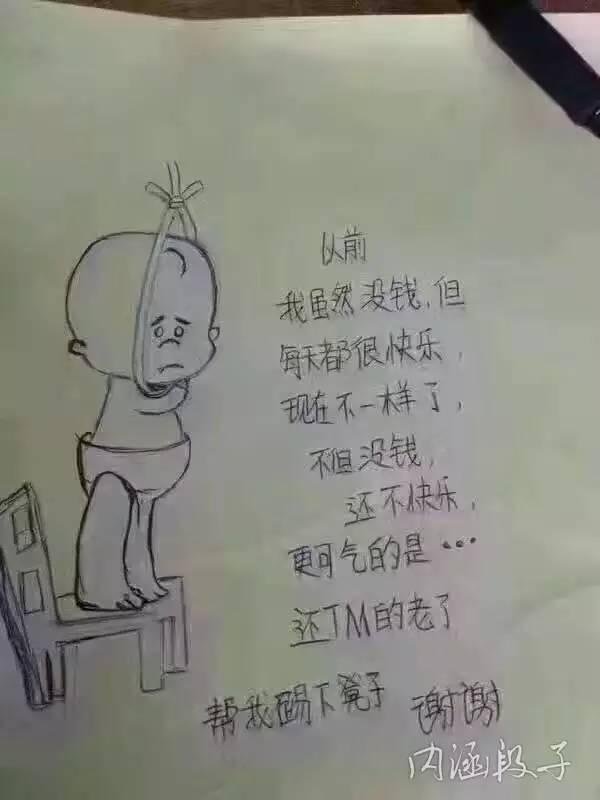 以前
我虽然没钱，但
每天都很快乐，
现在不一样了，
不但没钱，
还不快乐，
更可气的是···
还TM的老了
帮我踢下凳子 谢谢
内涵段子